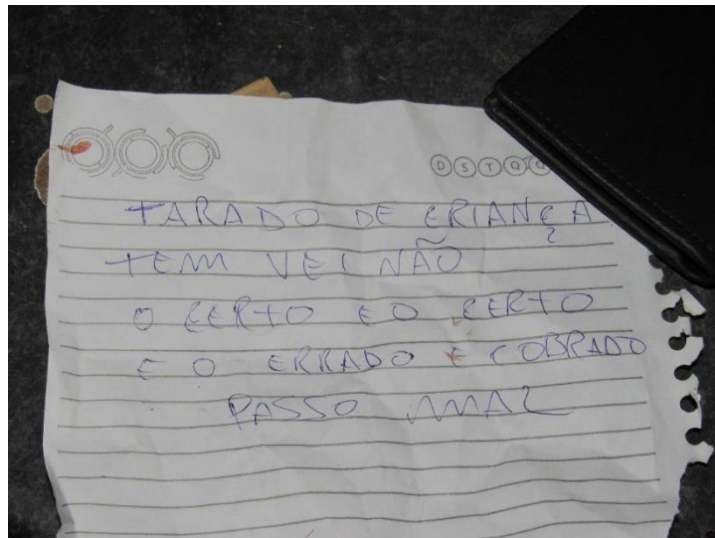 D S T Q Q
TARADO DE CRIANÇA
TEM VEI NÃO
O CERTO E O CERTO
E O ERRADO E COBRADO
PASSO MAL